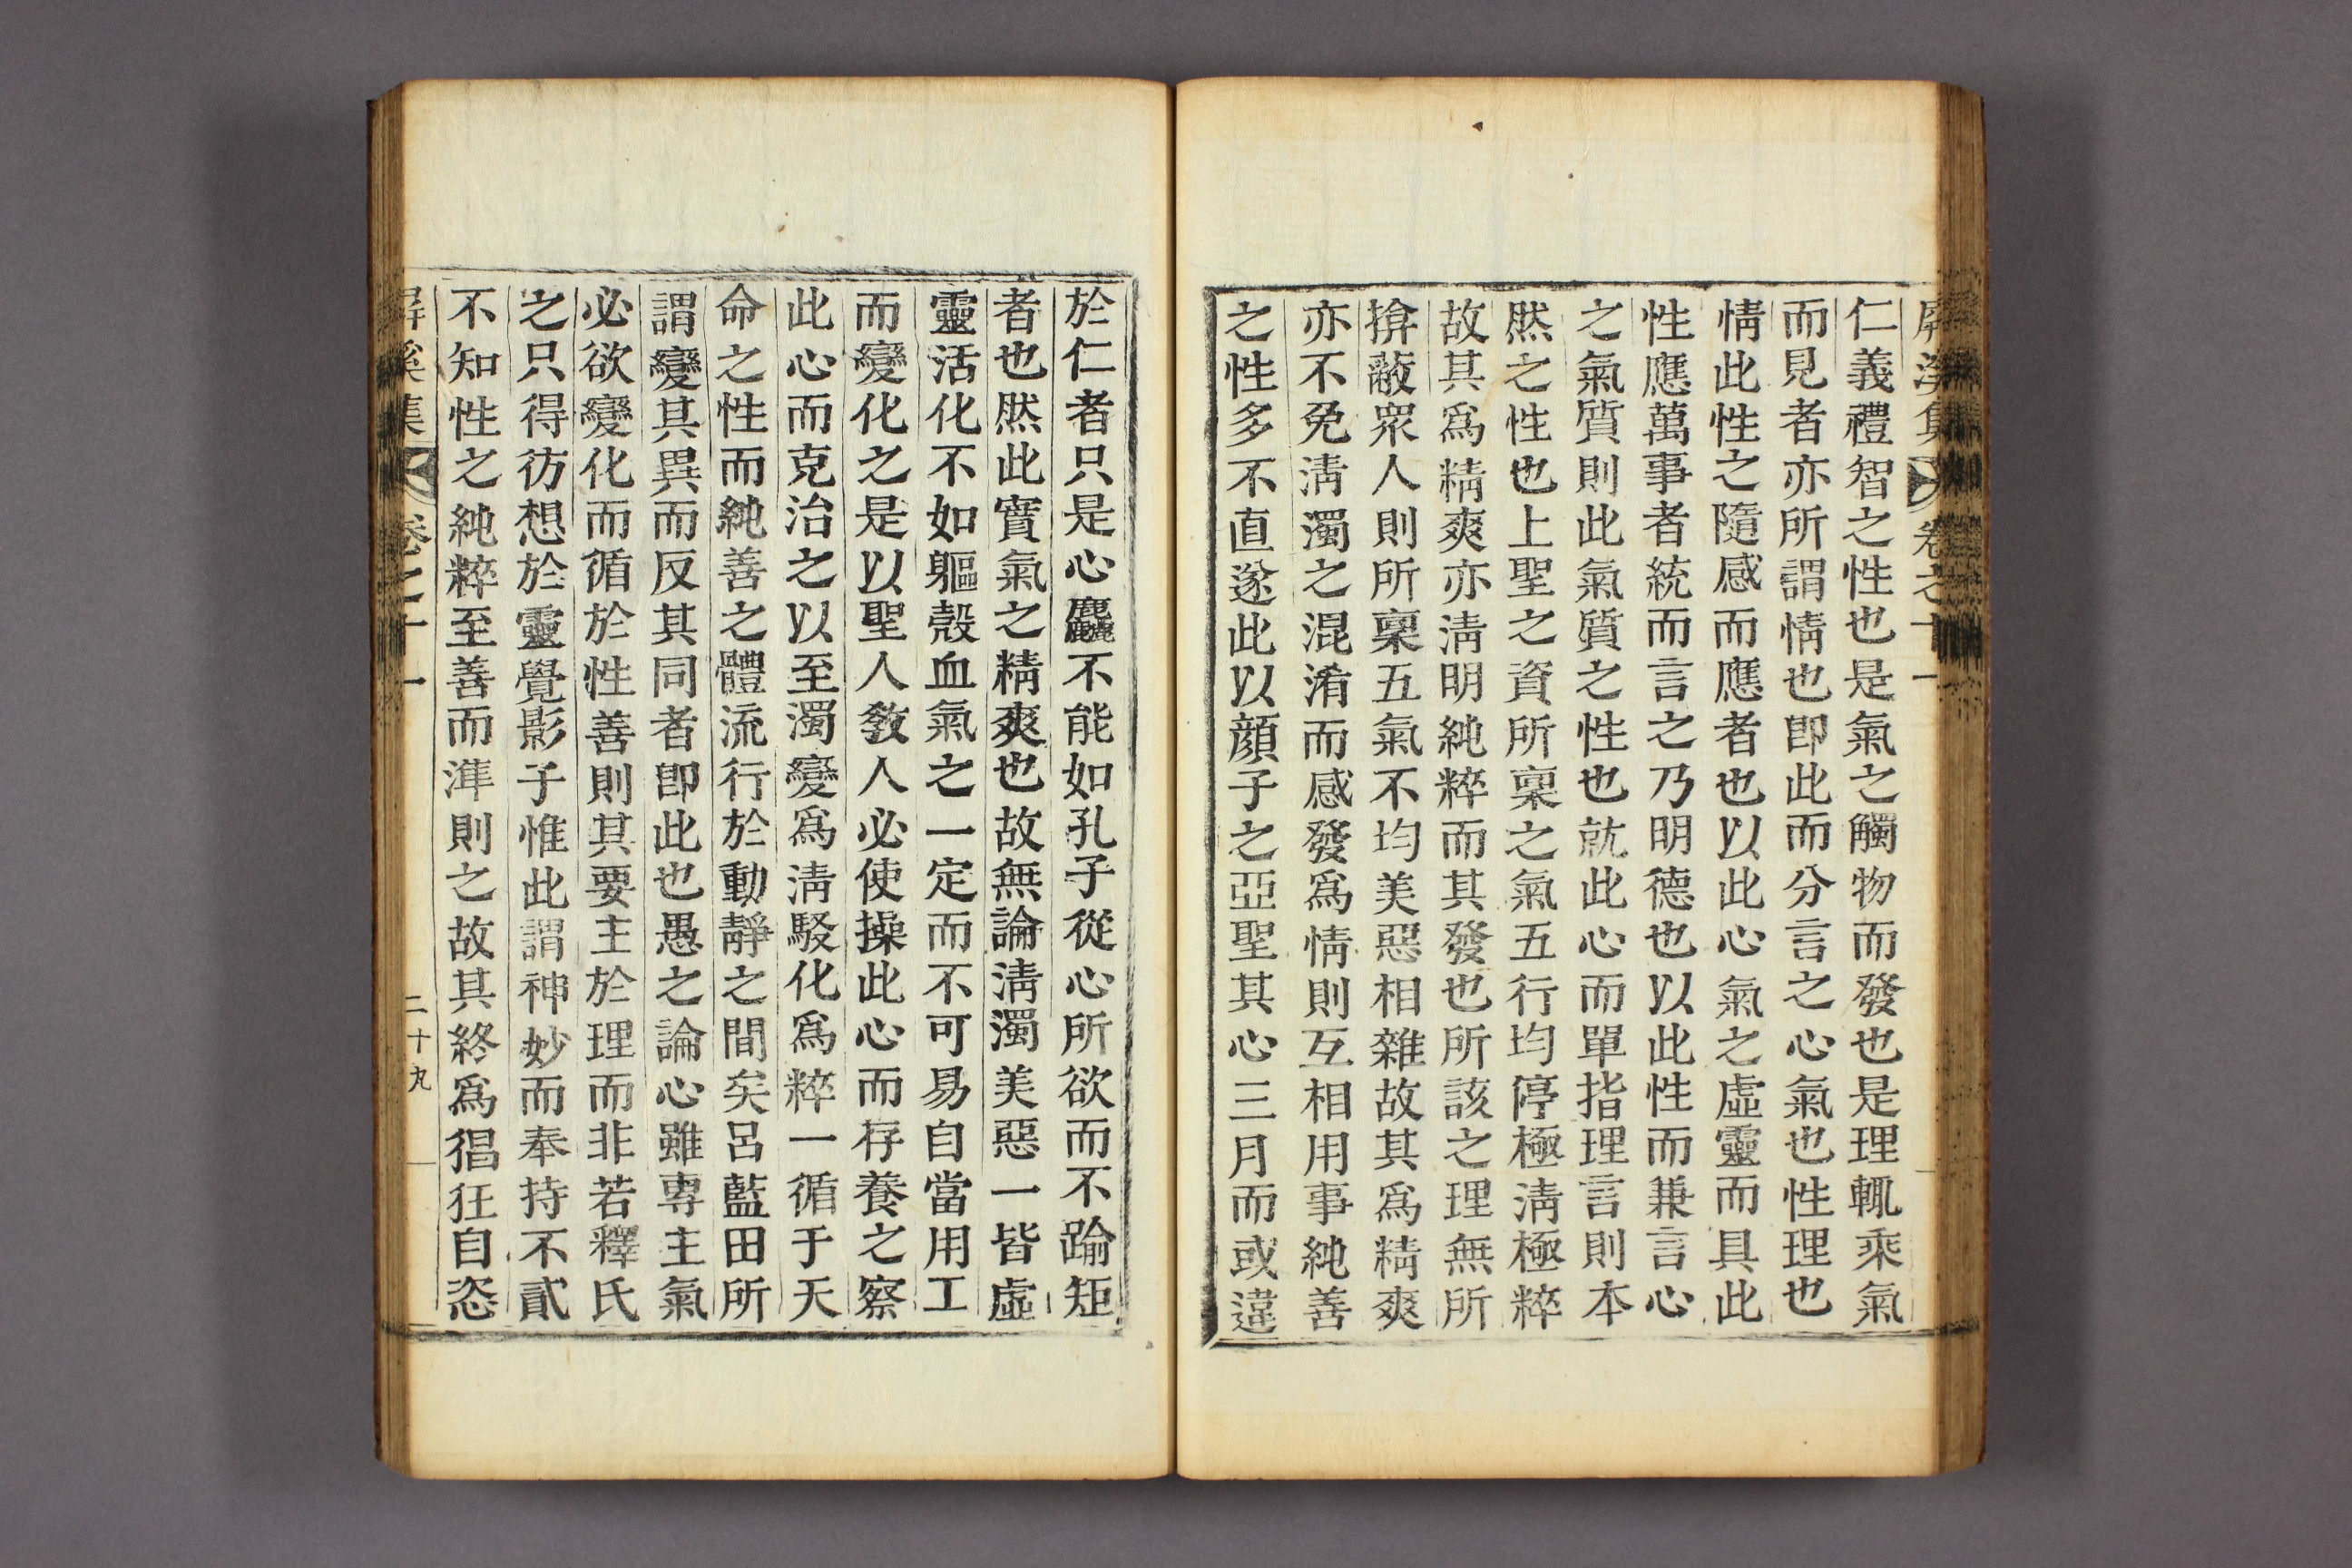 屛溪集 卷之十一
仁義禮智之性也是氣之觸物而發也是理輒乘氣
而見者亦所謂情也卽此而分言之心氣也性理也
情此性之隨感而應者也以此心氣之虛靈而具此
性應萬事者統而言之乃明德也以此性而兼言心
之氣質則此氣質之性也就此心而單指理言則本
然之性也上聖之資所稟之氣五行均停極淸極粹
故其爲精爽亦淸明純粹而其發也所該之理無所
揜蔽衆人則所稟五氣不均美惡相雜故其爲精爽
亦不免淸濁之混淆而感發爲情則互相用事純善
之性多不直遂此以顔子之亞聖其心三月而或違
於仁者只是心麤不能如孔子從心所欲而不踰矩
者也然此實氣之精爽也故無論淸濁美惡一皆虛
靈活化不如軀殼血氣之一定而不可易自當用工
而變化之是以聖人敎人必使操此心而存養之察
此心而克治之以至濁變爲淸駁化爲粹一循于天
命之性而純善之體流行於動靜之間矣呂藍田所
謂變其異而反其同者卽此也愚之論心雖專主氣
必欲變化而循於性善則其要主於理而非若釋氏
之只得彷想於靈覺影子惟此謂神妙而奉持不貳
不知性之純粹至善而準則之故其終爲猖狂自恣
屛溪集 卷之十一 二十九